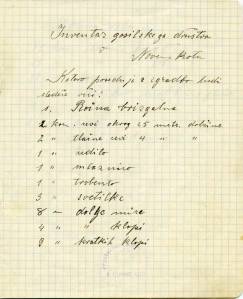 Inventar gasilskega društva
v
Novem kotu
Katero poseduje z zgradbo tudi
sledeče reči:
1. Ročna brizgalna
2 kom. cevi okrog 25 metr. dolžine
2 " tlačne cevi 4 " "
1 "
1 "
1 " trobento
3 " svetilke
8 – dolge mize
4 " " klopi
9 " kratkih klopi